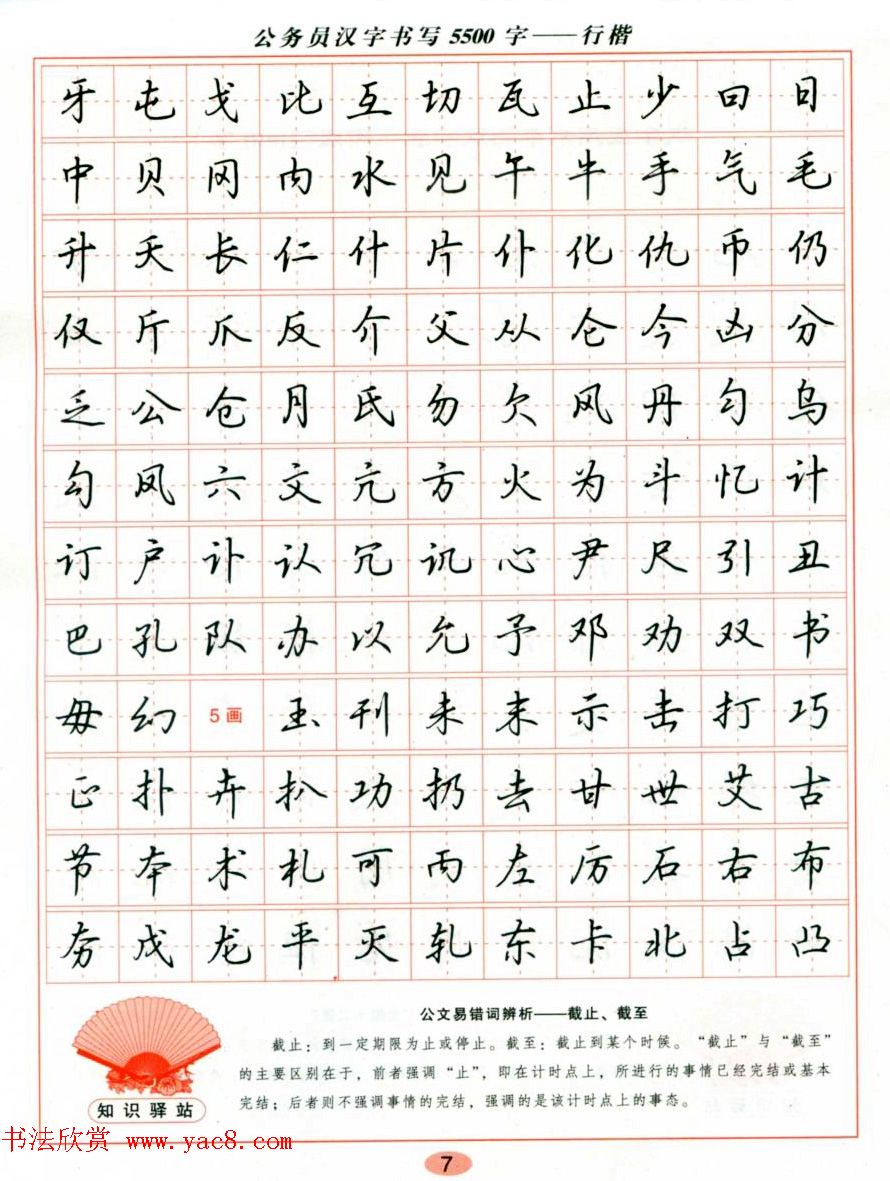 公务员汉字书写5500字——行楷
牙屯戈比互切瓦止少曰日
中贝冈内水见午牛手气毛
升夭长仁什片仆化仇币仍
仅斤爪反介父从仑今凶分
乏公仓月氏勿欠风丹匀乌
勾凤六文亢方火为斗忆计
订户讣认冗讥心尹尺引丑
巴孔队办以允予邓劝双书
毋幻5画玉刊未末示击打巧
正扑卉扒功扔去甘世艾古
节本术札可丙左厉石右布
夯戊龙平灭轧东卡北占凸
公文易错词辨析——截止、截至
截止：到一定期限为止或停止。截至：截止到某个时候。“截止”与“截至”
的主要区别在于，前者强调“止”，即在计时点上，所进行的事情已经完结或基本
完结；后者则不强调事情的完结，强调的是该计时点上的事态。
知识驿站
书法欣赏 www.yac8.com
7